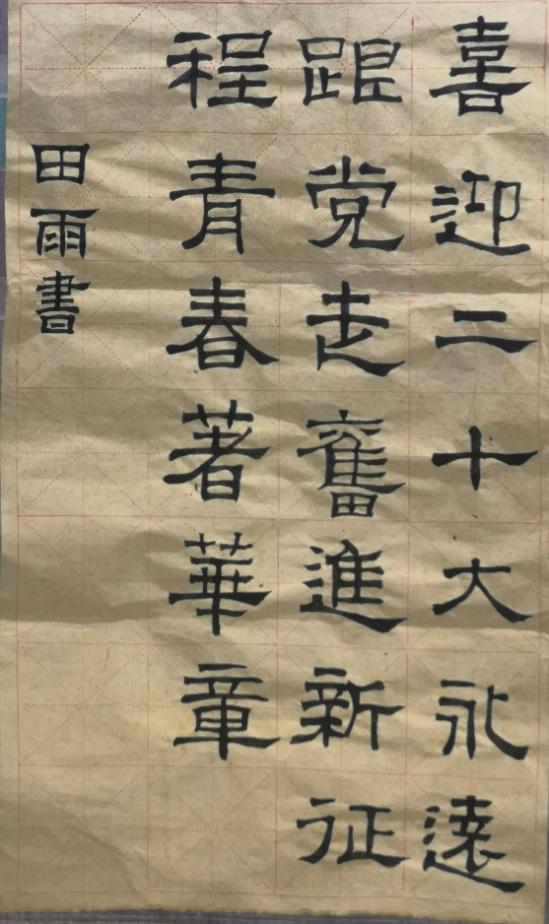 喜迎二十大永遠
跟党走奮進新征
程青春著華章
田雨書